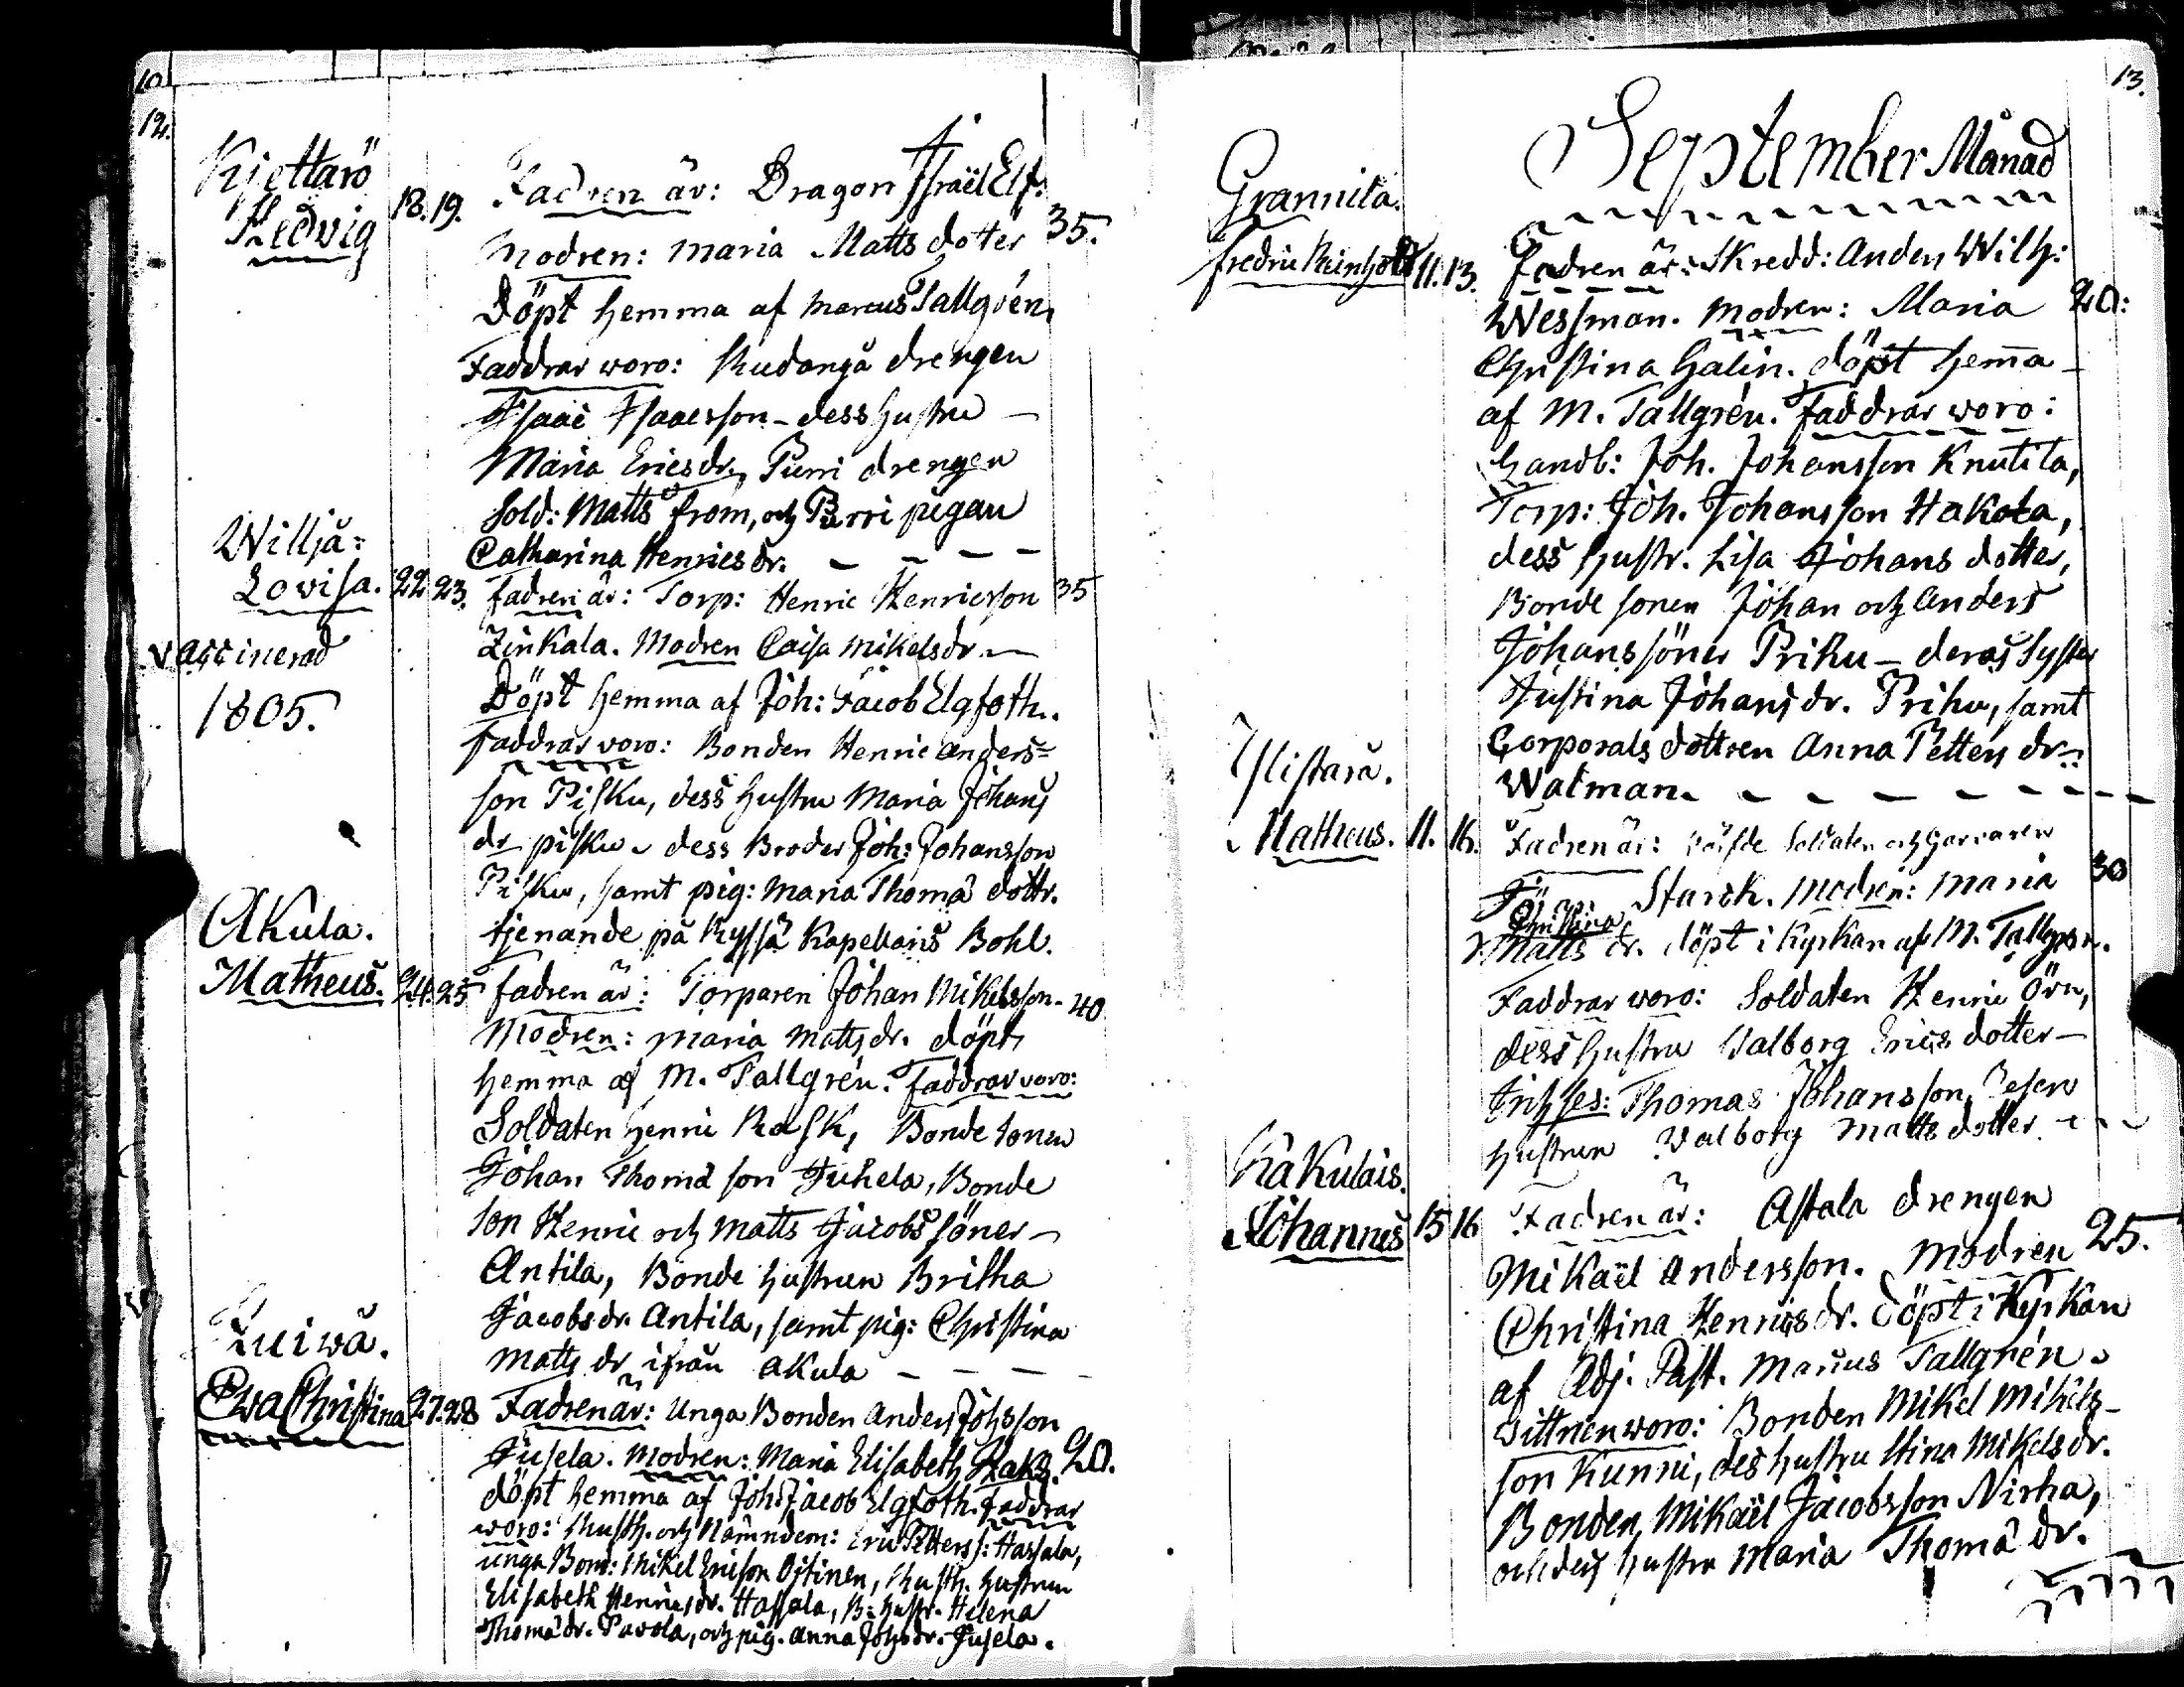 10
12.
Kjettarö
Hedvig
18. 19.
Fadren är: Dragon Israël Elf.
Modren: Maria Matts dotter 35.
Döpt hemma af Marcus Tallgrén,
Faddrar woro: drengen
Isaac Isaacsson - dess hustru -
Maria Ericsdr, Purri drengen
Sold: Matts From, och Purri pigan
Catharina Henricsdr.
Willjå:
Lovisa. 22 23. fadren är: Torp: Henric Henricsson 35
vaccinerad
1805.
Zinkala. Modren Caisa Mikelsdr.
Döpt hemma af Joh: Jacob Elgfoth.
faddrar voro: Bonden Henric Anders=
son Pisku, dess hustru Maria Johans
dr pisku, dess Broder Joh: Johansson
Pisku, samt pig: Maria Thomä dottr.
tjenande på Kapellans Bohl.
Akula.
Matheus. 24. 25 fadren är: Torparen Johan Mikelsson. 40
Modren: Maria Matts dr. döpt
hemma af M. Tallgrén. Faddrar voro:
Soldaten Henric Rask, Bonde Sonen
Johan Thomä son Juhela, Bonde
son Henric och Matts Jacobs söner -
Antila, Bonde hustrun Britha
Jacobsdr. Antila, samt pig: Christina
Matts dr ifrån Akula
Ewa Christina 27. 28 Fadren är: Unga Bonden Anders Johsson
Jusela. Modren: Maria Elisabeth 20.
döpt hemma af Joh: Jacob Elgfoth. faddrar
woro: och Nämndem: Eric Petterss: Hassala,
unga Bond: Mikel Ericson Ojtinen, hustrun
Elisabeth Henricsdr. Hassala, B: hustr. Helena
Thomä dr. Pavola, och pig. Anna Johsdr. Jusela.
13.
September Månad
Grannila.
Fredric Reinhold 11. 13. Fadren är: Skredd: Anders Wilh:
Wessman. Modren: Maria 20:
Christina Galin. döpt hem̄a
af M. Tallgrén. Faddrar woro:
Handl: Joh. Johansson Knutila,
Torp: Joh. Johansson Hakola,
dess hustr. Lisa Johans dotter,
Bonde sonen Johan och Anders
Johanssöner Priku - deras Syster
Justina Johansdr. Priku, samt
Corporals dottren Anna Petters dr:
Watman.
Ylistarå.
Matheus. 11. 16. Fadren är: Soldaten och
Starck. Modren: Maria 30
Christina
Matts dr. döpt i kyrkan af M. Tallgren.
Faddrar woro: Soldaten Henric Örn,
dess hustru Valborg Erics dotter -
Thomas Johansson,
hustrun Valborg Matts dotter.
Kåkulais.
Johannes 15 16 Fadren är: Astala drengen
Mikaël Andersson. Modren 25.
Christina Henricsdr. Döpt i Kyrkan
af Adj. Past. Marcus Tallgrén.
Wittnen woro: Bonden Mikel Mikels-
son Kunni, des hustru Stina Mikelsdr.
Bonden Mikaël Jacobsson Nirha,
och des hustru Maria Thomä dr.